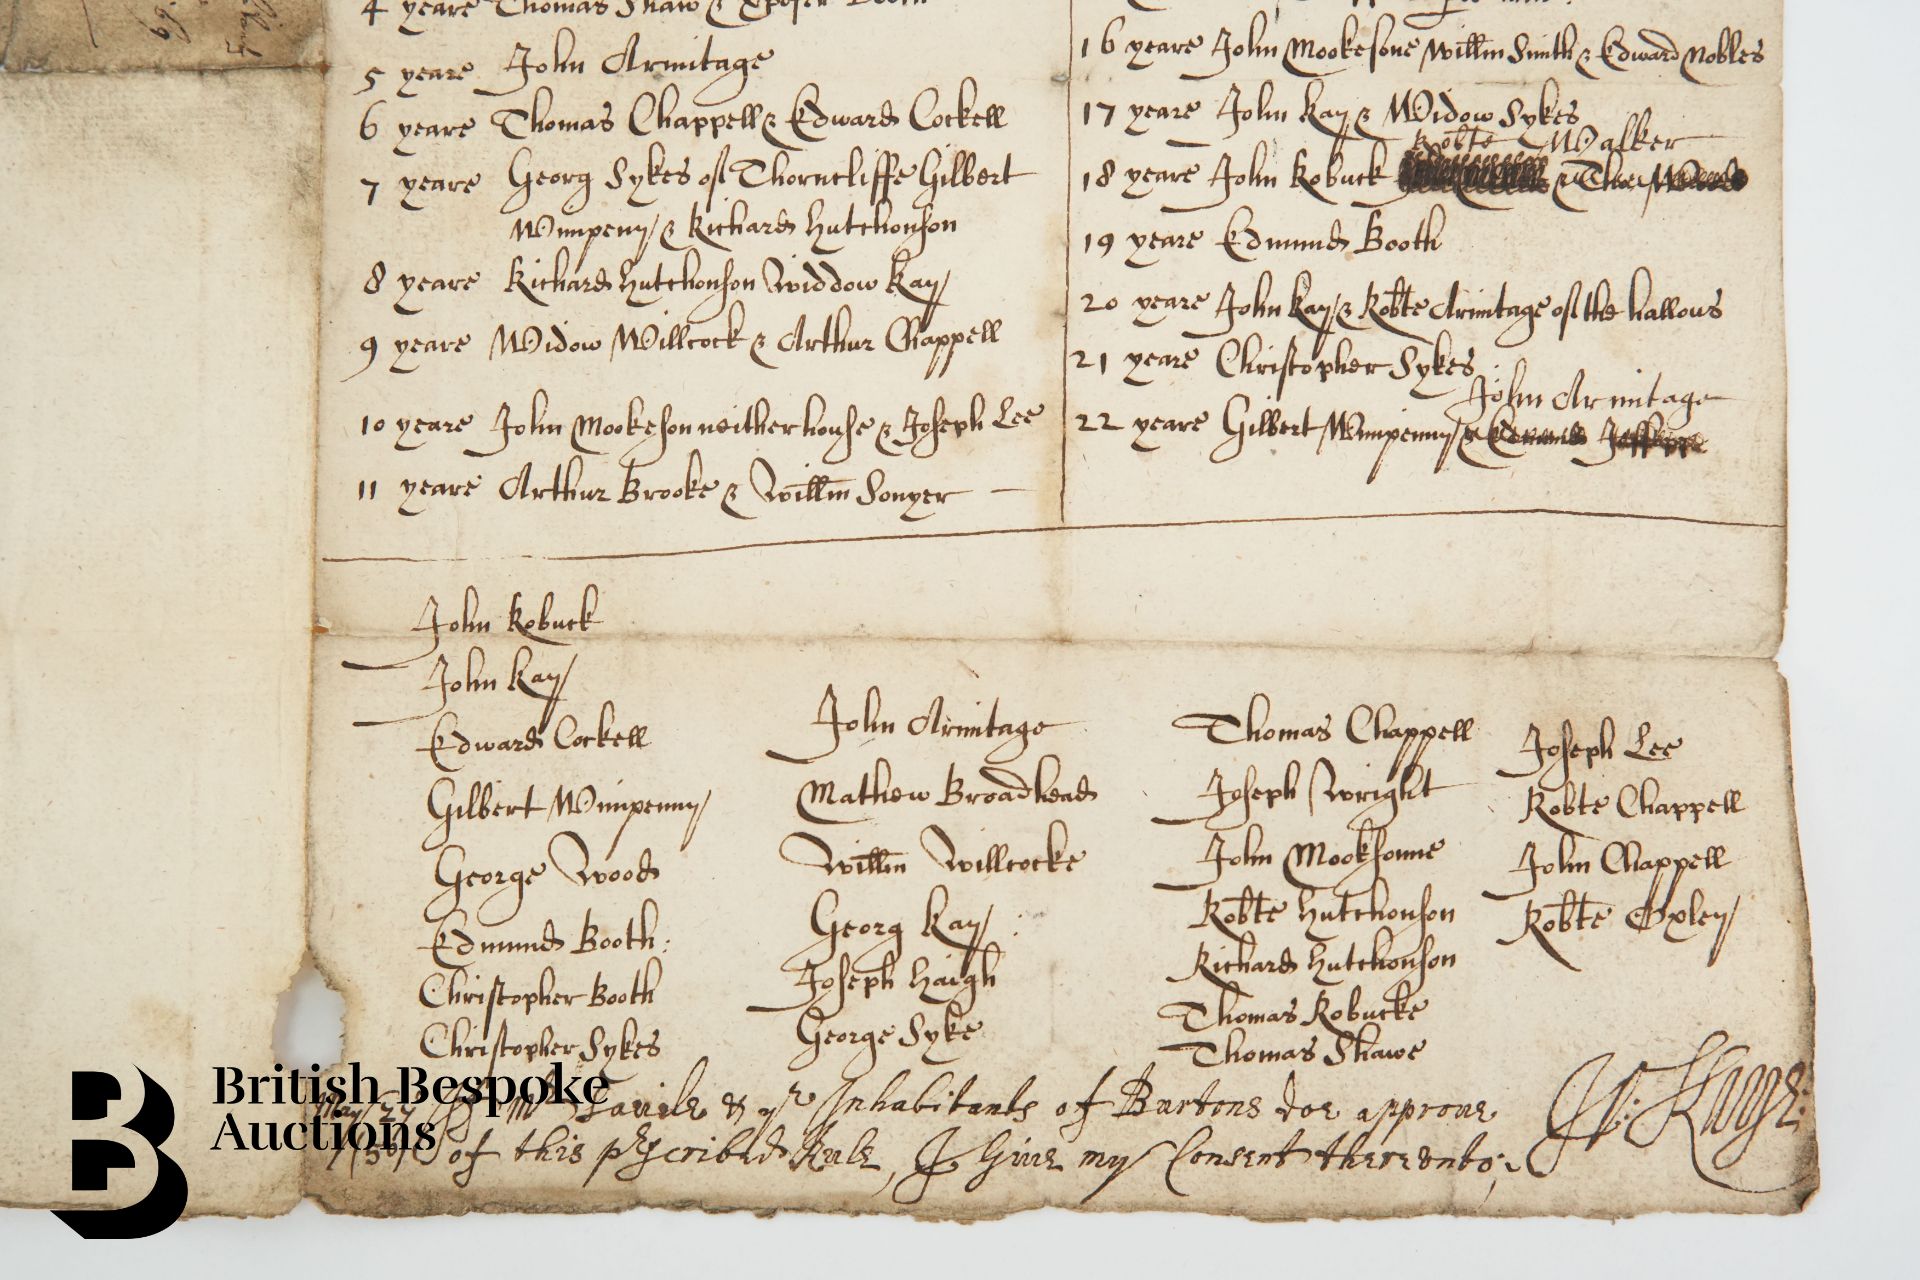 4 yeare Thomas Shaw &
5 yeare John Armitage
6 yeare Thomas Chappell & Edward Cockell
7 yeare Georg Sykes of Thorncliffe Gilbert
Wimpeny & Richard Hutchonson
8 yeare Richard Hutchonson Widdow Kay
9 yeare Widow Willcock & Arthur Chappell
10 yeare John Mookeson neither house & Joseph Lee
11 yeare Arthur Brooke & Willm Sonyer
16 yeare John Mookesone Willm Smith & Edward Nobles
17 yeare John Kay & Widow Sykes
Robte Walker
18 yeare John Robuck
19 yeare Edmund Booth
20 yeare John Kay & Robte Armitage of the hallows
21 yeare Christopher Sykes
John Armitage
22 yeare Gilbert Wimpenny & Edmund
John Robuck
John Kay
Edward Cockell
Gilbert Wimpenny
George Wood
Edmund Booth
Christopher Booth
Christopher Sykes
John Armitage
Mathew Broadhead
Willm Willcocke
Georg Kay
Joseph Haigh
George Syke
Thomas Chappell
Joseph Wright
John Mooksonne
Robte Hutchonson
Richard Hutchonson
Thomas Robucke
Thomas Shawe
Joseph Lee
Robte Chappell
John Chappell
Robte Oxley
May 27 Savile & ye Inhabitants of Burtons doe approue
of this pscribed Rule, I Giue my Consent therevnto;
British Bespoke
Auctions
B